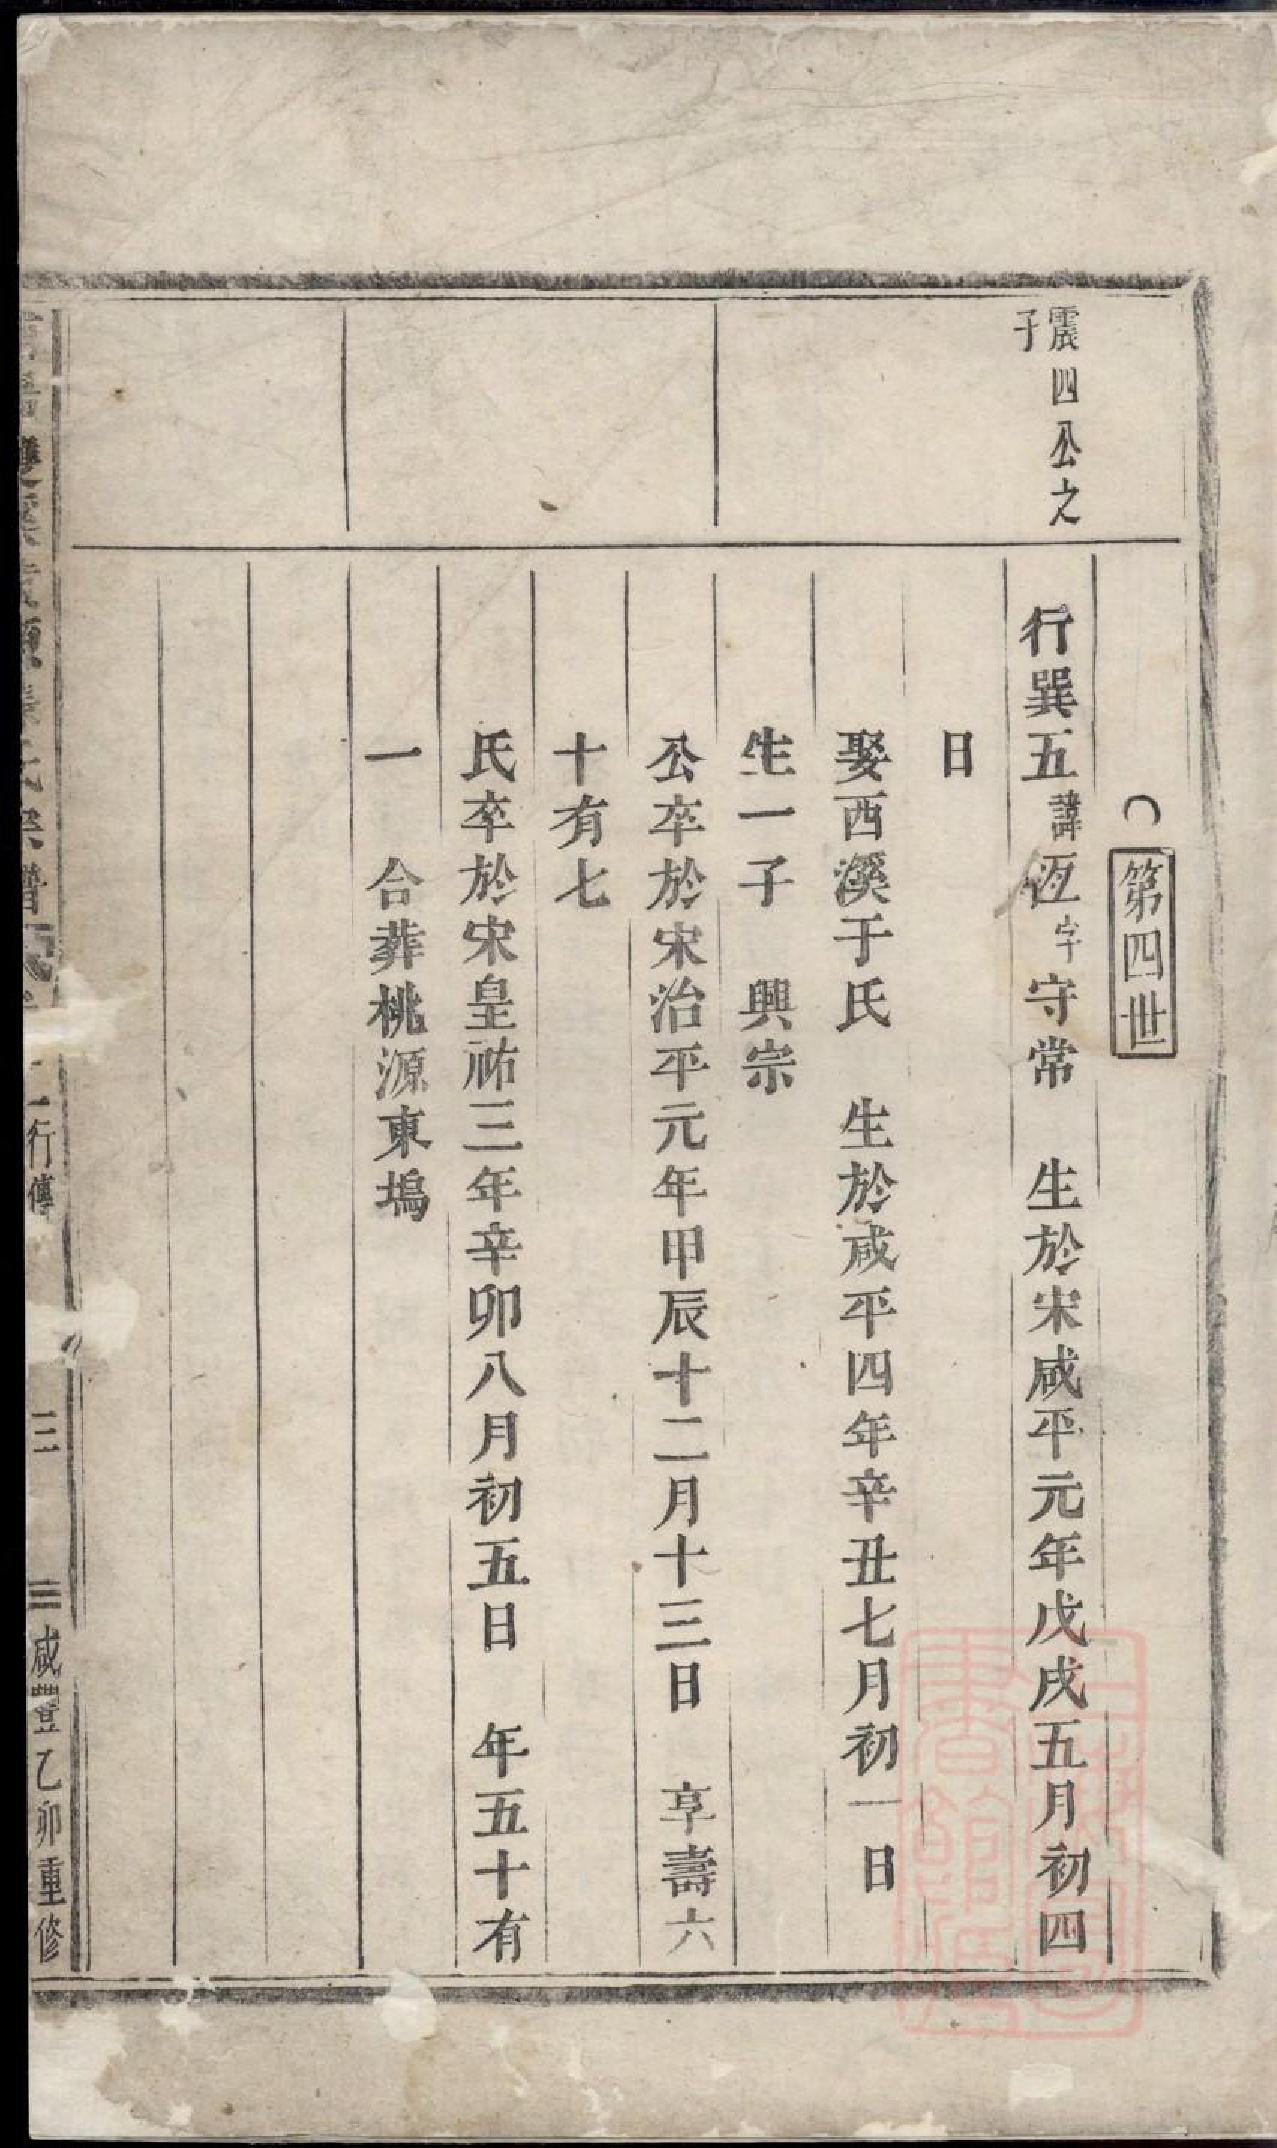 第四世
震四公之
子
行巽五諱恆字守常　生於宋咸平元年戊戌五月初四
日
娶西溪于氏　生於咸平四年辛丑七月初一日
生一子　興宗
公卒於宋治平元年甲辰十二月十三日　享壽六
十有七
氏卒於宋皇祐三年辛卯八月初五日　年五十有
一　合葬桃源東塢
行傳
三
咸豐乙卯重修